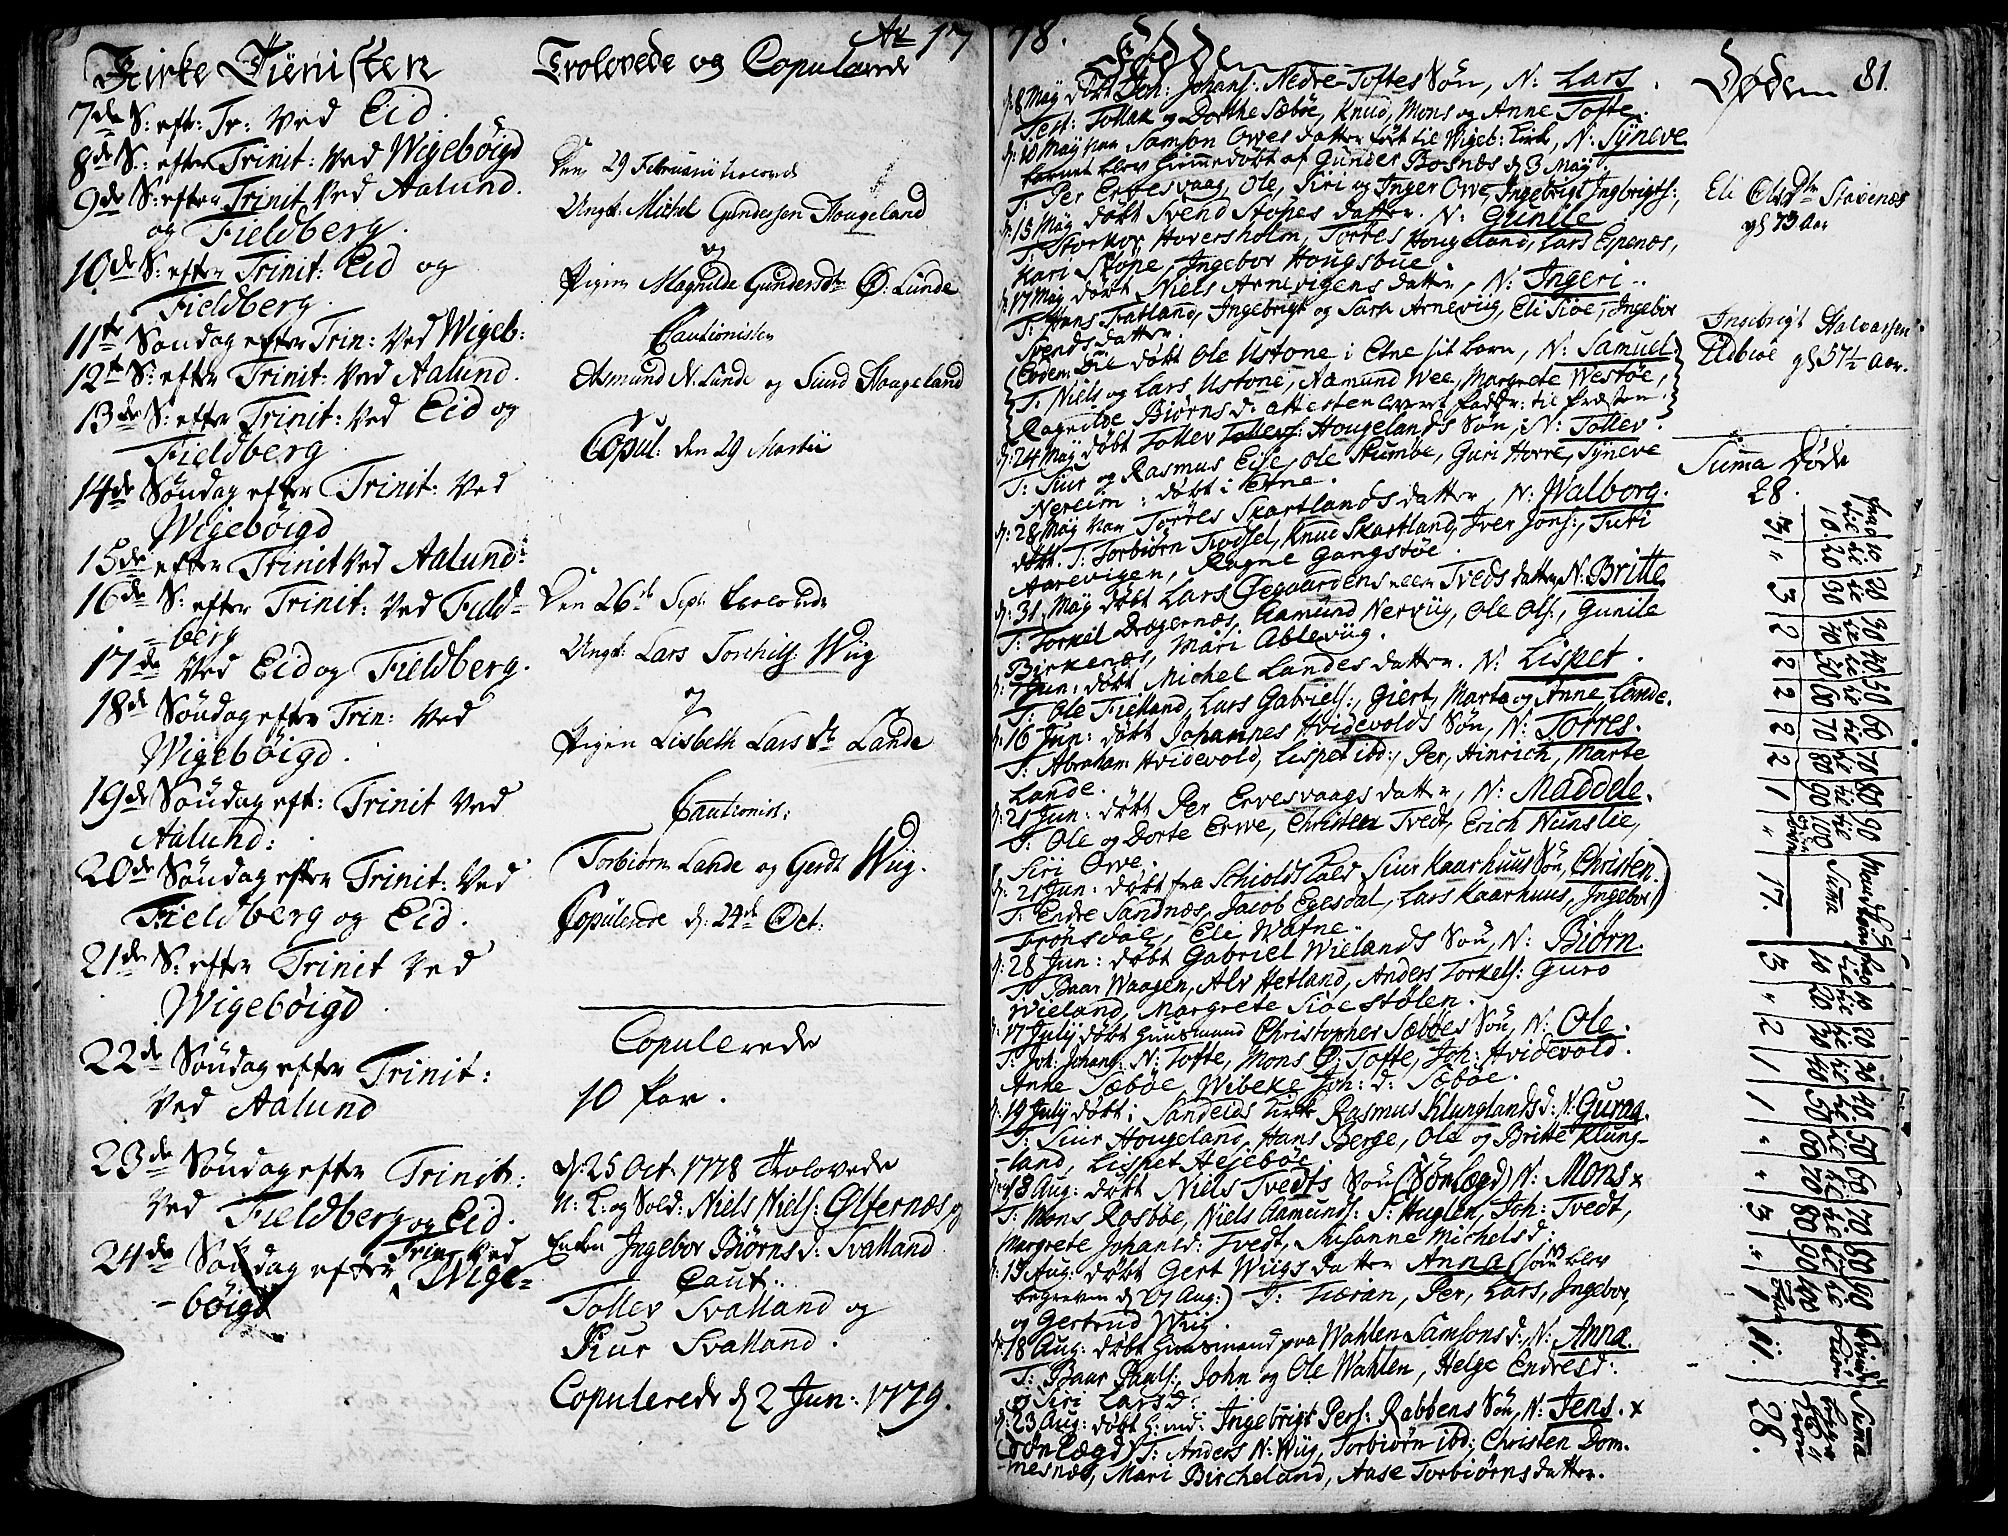 Kirke Tiënisten
7de S: eft: Tr: ved Eid.
8de S: efter Trinit: ved Wigebøigd
9de S: efter Trinit ved Aalund.
og Fieldberg.
10de S: efter Trinit: Eid og
Fieldberg.
11te Søndag efter Trin: ved Wigeb:
12te S: efter Trinit: ved Aalund.
13de S: efter Trinit: ved Eid og
Fieldberg
14de Søndag efter Trinit: ved
Wigebøigd
15de efter Trinit ved Aalund:
16de S: efter Trinit: ved Field-
-berg
17de ved Eid og Fieldberg.
18de Søndag efter Trin: ved
Wigebøigd.
19de Søndag eft: Trinit ved
Aalund:
20de Søndag efter Trinit: ved
Fieldberg og Eid.
21de S: efter Trinit ved
Wigebøigd.
22de Søndag efter Trinit:
ved Aalund
23de Søndag efter Trinit:
ved Fieldberg og Eid.
24de Søndag efter Trin: ved
Wige-
-bøigd
Trolovede og Copulerede
Ao 17
Den 29 Februarii trolovede
Ungk: Michel Gundersen Hougeland
og
Pigen Magnilde Gundersdtr Ø: Lunde
Cautionisten
Asmund N: Lunde og Siurd Hougeland
Copul: den 29 Martii
Den 26de Sept: trolovede
Ungk: Lars Torchils: Wiig
og
Pigen Lisbeth Larsdtr Lande
Cautionist:
Torbiørn Lande og Gerdt Wiig.
Copulerede d: 24de Oct:
Copulerede
10 Par.
d: 25 Oct. 1778 trolovede
U: K: og Sold: Niels Niels: Ølfernæs, og
Enken Ingebor Biørnsd: Svalland
Caut:
Tollev Svalland og
Siur Svalland.
Copulerede d 2 Jun: 1779.
78.
Fødde
d: 8 May døbt Joh: Johans: Nedre-Toftes Søn, N: Lars.
Test: Tollak og Dorthe Sæbøe, Knud, Mons og Anne Tofte.
d: 10 May var Samson Owes datter ført til Wigeb: Kirk, N: Syneve
barnet blev hiemedøbt af Gunder Bosnæs d 3 May
T: Per Ervesvaag, Ole, Siri og Inger Owe, Ingebrigt Ingbrigts:,
d: 15 May døbt Svend Stopes datter. N: Gunile
T: Storkor Hoversholm, Torres Hougeland, Lars Espenæs,
Kari Stope, Ingebor Hougsbue.
d: 17 May døbt Niels Arnevigens datter, N: Ingeri.
T: Hans Fatland, Ingebrigt og Sara Arneviig, Eli Siøe, Ingebor
Svends datter.
Eodem Die døbt Ole Ustone i Etne sit barn, N: Samuel
T: Niels og Lars Ustone, Aamund Wee, Margrete Westøe,
Ragnilde Biørnsd: attesten leveret Faddr: til Præsten.
d: 24 May døbt Tollev Tollevs: Hougelands Søn, N: Tollev.
T: Siur og Rasmus Eile, Ole Skumbe, Guri Horre, Syneve
Nereim: døbt i Etne.
d: 28 May var Torres Skartlands datter, N: Walborg.
døbt. T: Torbiørn Tvedsel, Knud Skartland, Iver Jons:, Turi
Aarevigen, Ragne Gangstøe.
d: 31 May døbt Lars Øegaardens Tveds datter N: Britte
T: Torkel Dragenæs, Aamund Nerviig, Ole Ols:, Gunile
Birkenæs, Mari Ableviig.
d: 7 Jun: døbt Michel Landes datter. N: Lispet.
T: Ole Fielland, Lars Gabriels:, Giert, Marta og Anne Lande.
d: 16 Jun: døbt Johannes Hvidevolds Søn, N: Torres.
T: Abraham Hvidevold, Lispet ibd:, Per, Hinrich, Marte
Lande.
d: 21 Jun: døbt Per Ervesvaags datter, N: Maddele.
T: Ole og Dorte Erve, Christen Tvedt, Erich Nunslie,
Siri Owe.
d: 21 Jun: døbt fra Schiolds Kald Siur Kaarhuus Søn, Christen.
T: Endre Sandnæs, Jacob Egesdal, Lars Kaarhuus, Ingebor
Frønsdal, Eli Watne.
d: 28 Jun: døbt Gabriel Wielands Søn, N: Biørn.
T: Baar Waagen, Alv Hetland, Anders Torkels: Guro
Wieland, Margrete Sioestølen.
d: 17 July døbt Huusmand Christopher Sæbøes Søn, N: Ole.
T: Joh: Johans: N: Tofte, Mons Ø: Tofte, Joh: Hvidevold.
Anne Sæbøe, Wibeke Joh: d: Sæbøe.
d: 19 July døbt i Sandeids Kirk Rasmus Klunglands d: N: Gurna.
T: Siur Hougeland, Hans Berge, Ole og Britte Klung-
-land, Lispet Hejebøe.
d: 13 Aug: døbt Niels Tvedts Søn (Sønlægd) N: Mons x
T: Mons Rosbøe, Niels Aamunds: S: Huglen, Joh: Tvedt,
Margrete Johansd: Tvedt, Susanne Michelsd:
d: 15 Aug: døbt Gert Wiigs datter Anna (som blev
begraven d 27 Aug:) T: Tiæran, Per, Lars, Ingebor,
og Gertrud Wiig.
d: 18 Aug: døbt Huusmand paa Wahlen Samsons d:, N: Anna.
T: Baar Pauls:, John og Ole Wahlen, Helge Endresd:
og Siri Larsd:
d: 23 Aug: døbt H:md: Ingebrigt Pers: Rabbens Søn, N: Jens. x
(Sønlægd) T: Anders N: Wiig, Torbiørn ibd: Christen Dom-
mesnæs, Mari Bircheland, Aase Torbiørns datter.
Døde
81.
Eli Olsdtr Stavenæs
gl 73 Aar
Ingebrigt Halvorsen
Eldbiøe gl 57½ Aar.
Suma Døde
28.
fra 0 10 20 30 40 50 60 70 80 90 Mandkion
til til til til til til til til til til
10. 20 30 40 50 60 70 80 90 100 Suma
3 " 3 2 2 2 2 2 1 " 17.
fra 0 10 20 30 40 50 60 70 80 90
til til til til til til til til til til
10 20 30 40 50 60 70 80 90 100
3 " 2 1 1 " " 3 " 1 11. 28.